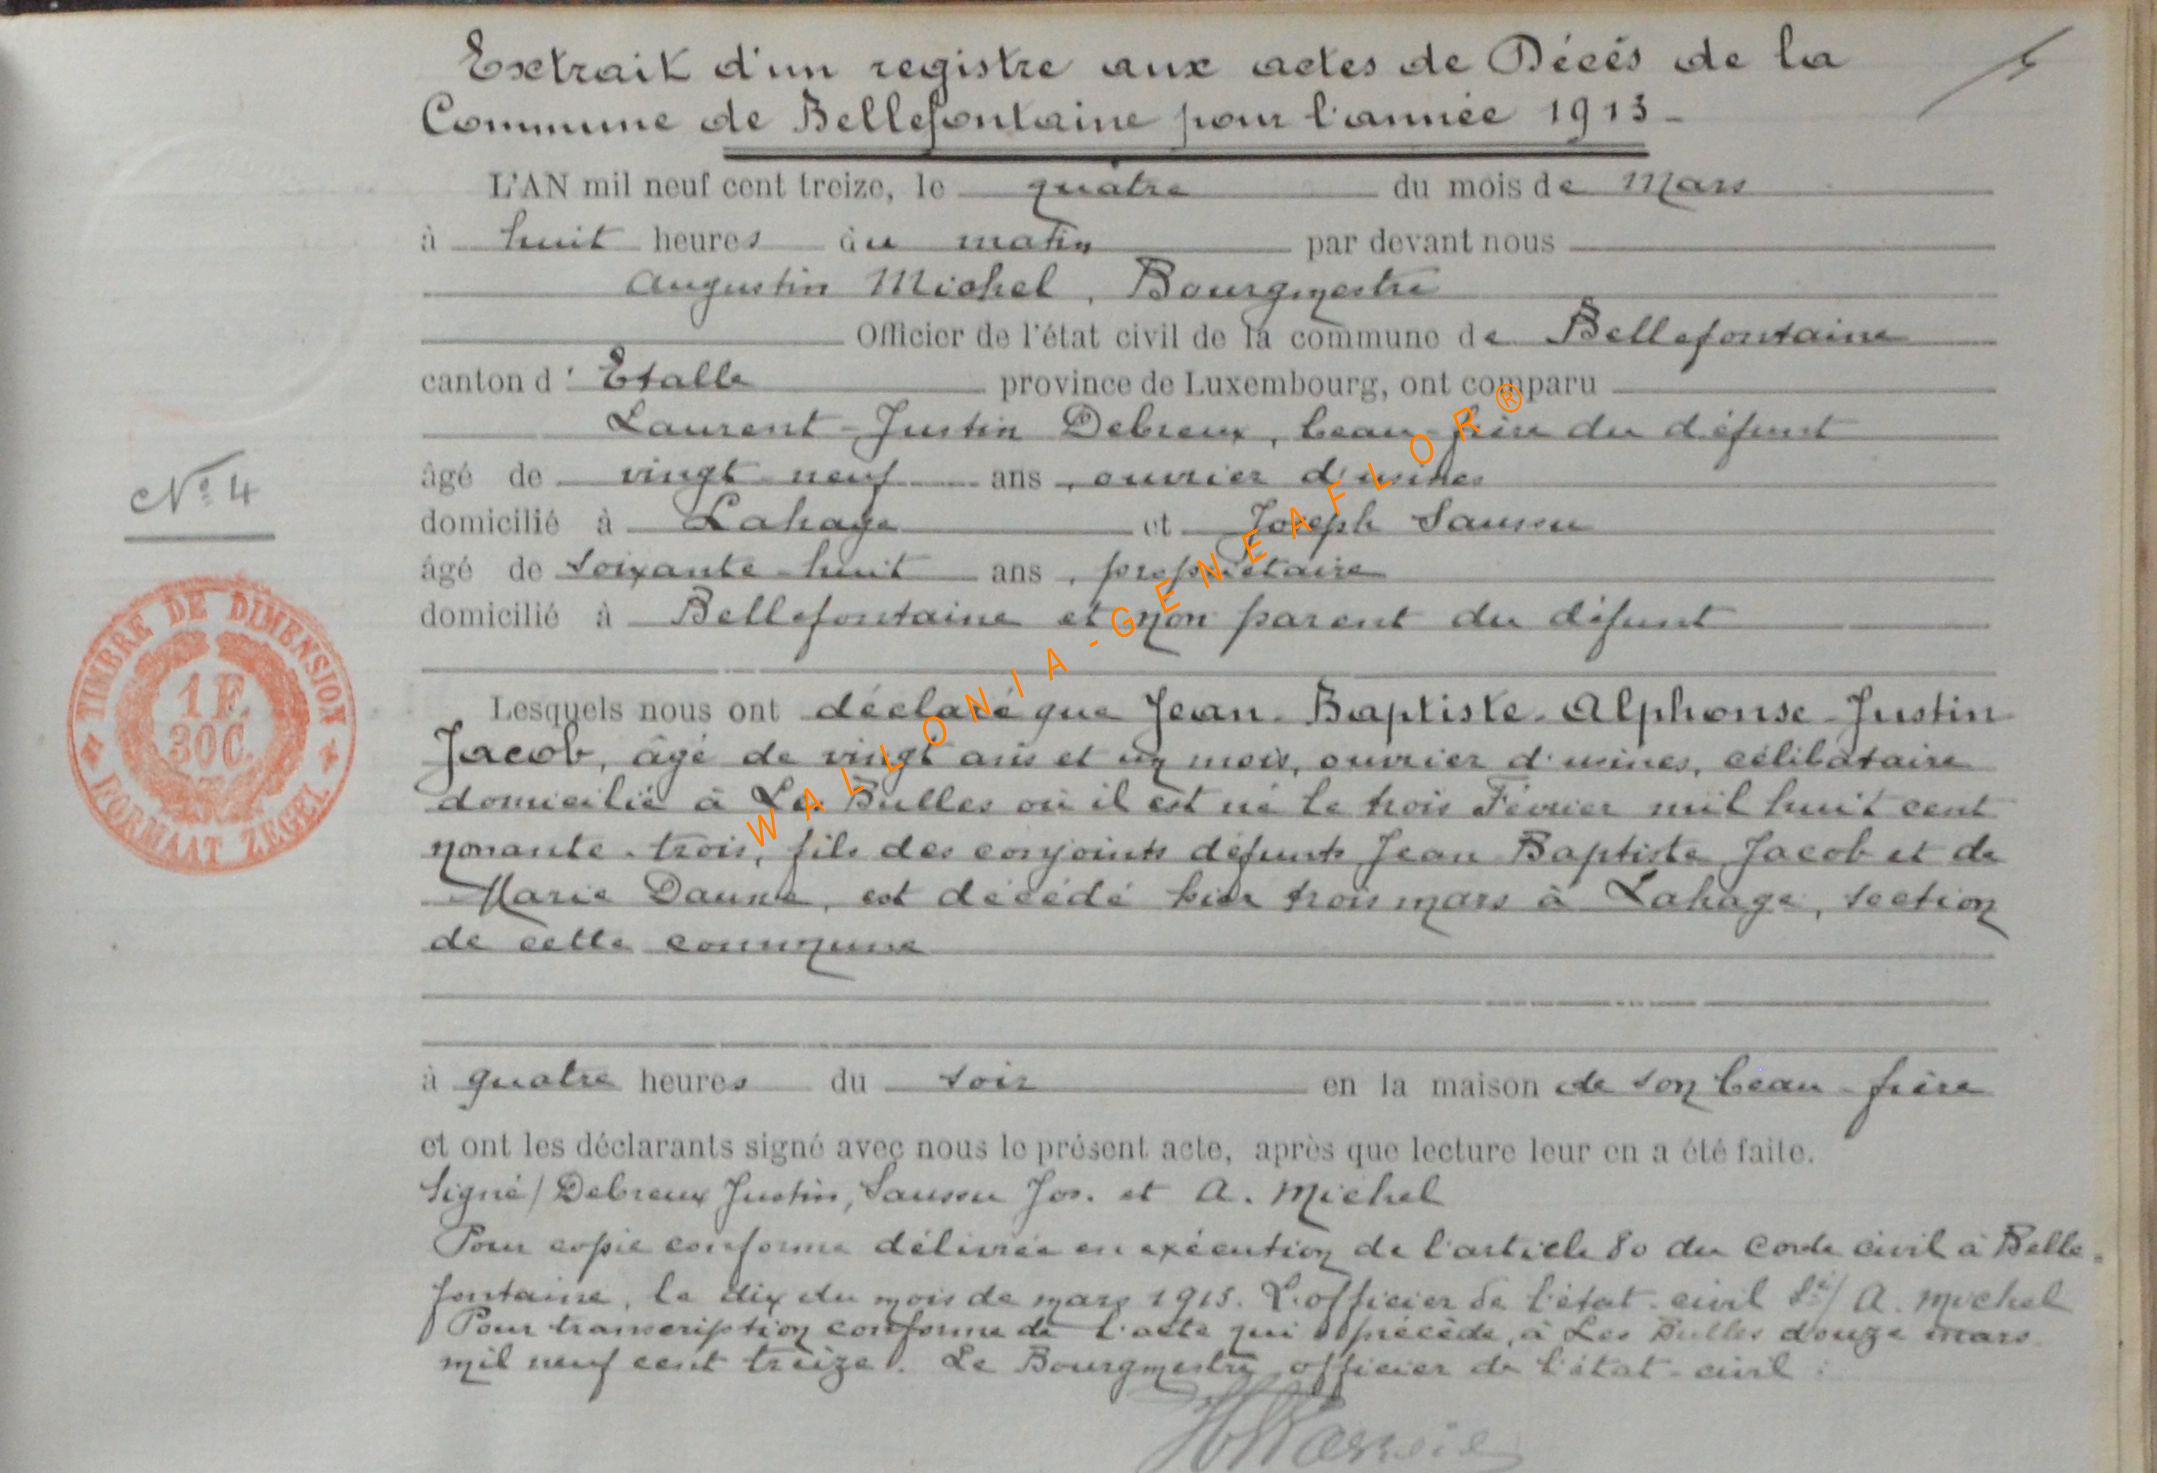 Extrait d'un registre aux actes de Décés de la
Commune de Bellefontaine pour l'année 1913 -
L'AN mil neuf cent treize, le quatre du mois de Mars
à huit heures du matin par devant nous
Augustin Michel, Bourgmestre
Officier de l'état civil de la commune de Bellefontaine
canton d' Etalle province de Luxembourg, ont comparu
Laurent-Justin Debreux, beau-frère du défunt
âgé de vingt neuf ans, ouvrier d'usines
N° 4
domicilié à Lahage et Joseph Sausseu
âgé de soixante-huit ans, propriétaire
domicilié à Bellefontaine et non parent du défunt
TIMBRE DE DIMENSION
1 F. 30C.
FORMAAT ZEGEL
Lesquels nous ont déclaré que Jean-Baptiste-Alphonse-Justin
Jacob, âgé de vingt ans et un mois, ouvrier d'usines, célibataire
domicilié à Les Bulles où il est né le trois Février mil huit cent
nonante-trois, fils des conjoints défunts Jean Baptiste Jacob et de
Marie Daune, est décédé hier trois mars à Lahage, section
de cette commune
à quatre heures du soir en la maison de son beau-frère
et ont les déclarants signé avec nous le présent acte, après que lecture leur en a été faite.
Signé/ Debreux Justin, Sausseu Jos. et A. Michel
Pour copie conforme délivrée en exécution de l'article 80 du Code civil à Belle-
fontaine, le dix du mois de mars 1913. L'officier de l'état-civil Sé/ A. Michel
Pour transcription conforme de l'acte qui précède, à Les Bulles douze mars
mil neuf cent treize. Le Bourgmestre, officier de l'état-civil :
WALLONIA-GENEAFLOR®